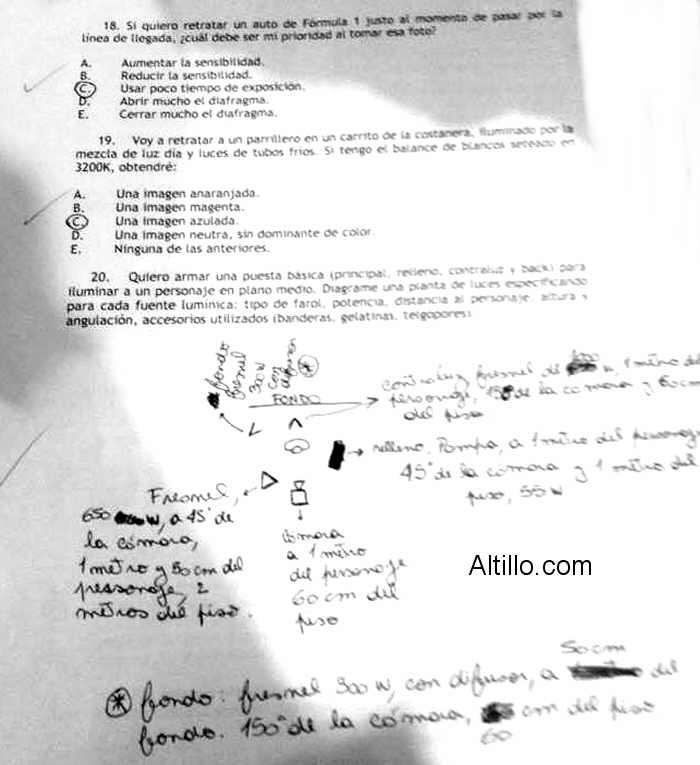 18. Si quiero retratar un auto de Fórmula 1 justo al momento de pasar por la
línea de llegada, ¿cuál debe ser mi prioridad al tomar esa foto?
A. Aumentar la sensibilidad.
B. Reducir la sensibilidad.
C. Usar poco tiempo de exposición.
D. Abrir mucho el diafragma.
E. Cerrar mucho el diafragma.
19. Voy a retratar a un parrillero en un carrito de la costanera, iluminado por la
mezcla de luz día y luces de tubos fríos. Si tengo el balance de blancos seteado en
3200K, obtendré:
A. Una imagen anaranjada.
B. Una imagen magenta.
C. Una imagen azulada.
D. Una imagen neutra, sin dominante de color.
E. Ninguna de las anteriores.
20. Quiero armar una puesta básica (principal, relleno, contraluz y back) para
iluminar a un personaje en plano medio. Diagrame una planta de luces especificando
para cada fuente lumínica: tipo de farol, potencia, distancia al personaje, altura y
angulación, accesorios utilizados (banderas, gelatinas, telgopores)
fondo
fresnel
300 W
con
difusor
FONDO
contraluz fresnel de
personaje, de la cámara y 60 cm
del piso
relleno, Pampa, a 1 metro del personaje
45° de la cámara y 1 metro del
piso, 55 W
Fresnel,
650 W, a 45° de
la cámara,
1 metro y 50 cm del
personaje, 2
metros del piso.
cámara
a 1 metro
del personaje
60 cm del
piso
Altillo.com
50 cm
fondo: fresnel 300 W, con difusor, a del
fondo. 150° de la cámara, cm del piso
60